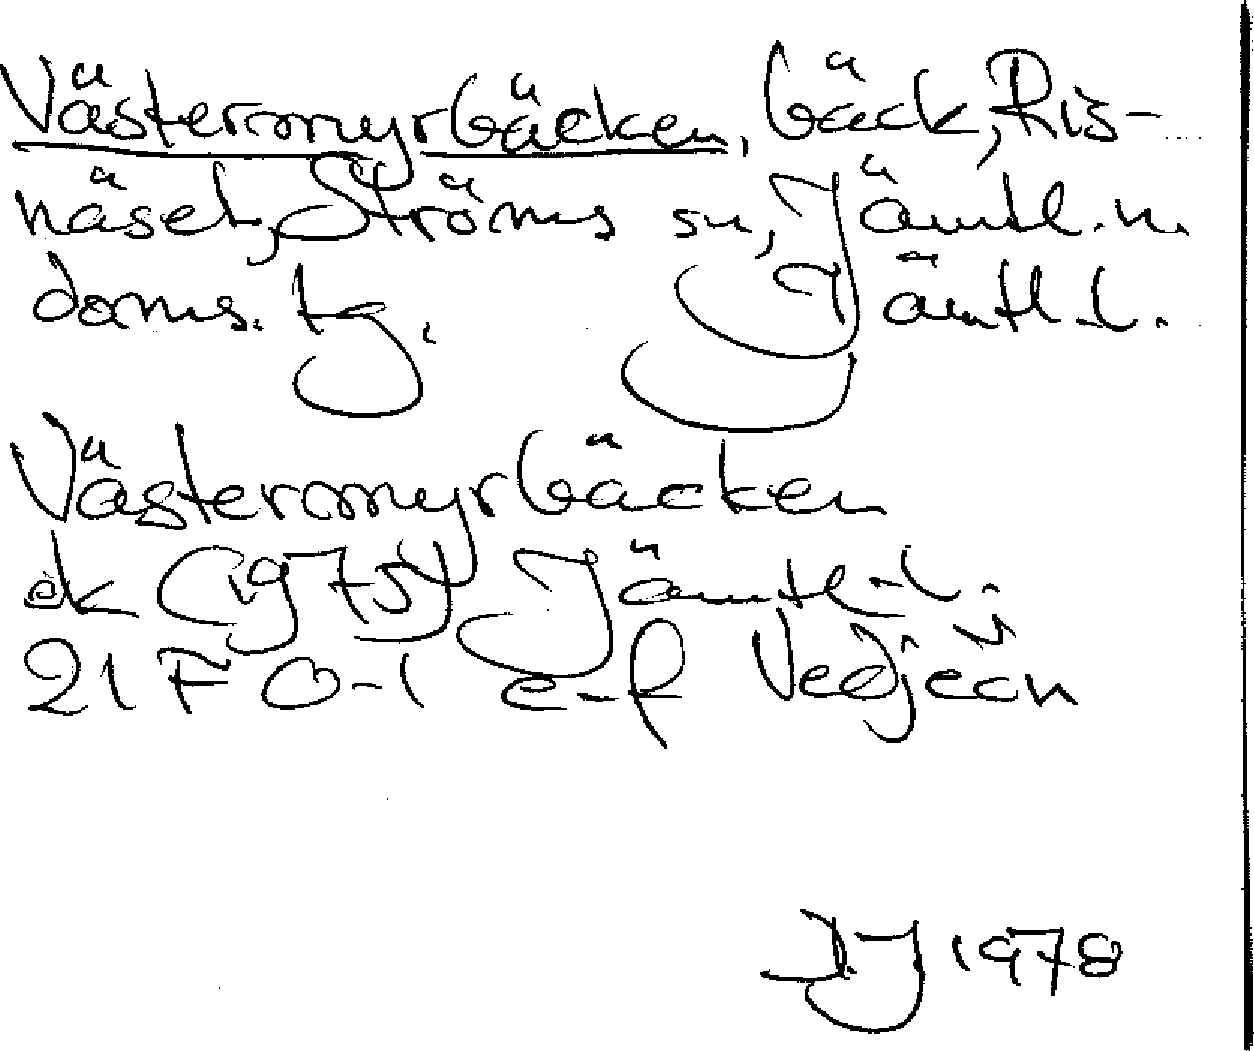 Västermyrbäcken, bäck, Ris-
näset, Ströms sn, Jämtl. n.
doms. tg. Jämtl. l.
Västermyrbäcken
ek (1975) Jämtl. l.
21 F 0-1 e-f Vedjeön
DJ 1978